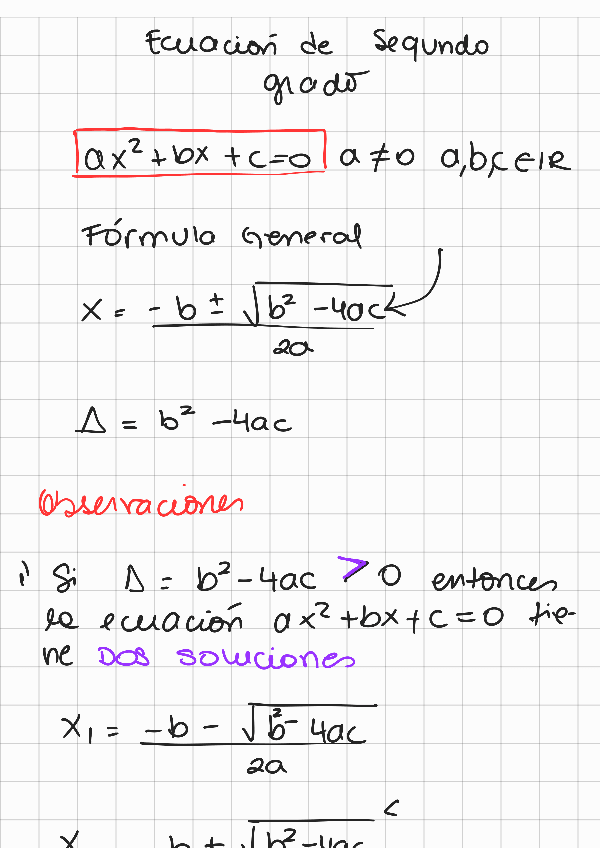 Ecuación de Segundo
grado
ax²+bx+c=0 a≠0 a,b,c∈IR
Fórmula General
x = -b ± √(b² -4ac)
2a
Δ = b² -4ac
Observaciones
i) Si Δ = b²-4ac > 0 entonces
la ecuación ax²+bx+c=0 tie-
ne DOS soluciones
x₁ = -b - √(b²- 4ac)
2a
x b + √(b²-4ac